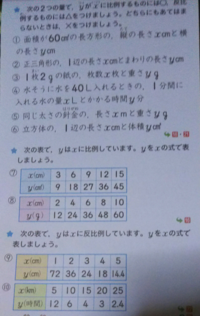 ★ 次の2つの量で、yがxに比例するものには○、反比
例するものには△をつけましょう。どちらにもあてはま
らないときは、×をつけましょう。
① 面積が60cm²の長方形の、縦の長さxcmと横
の長さycm
② 正三角形の、1辺の長さxcmとまわりの長さycm
③ 1枚2gの紙の、枚数x枚と重さyg
④ 水そうに水を40L入れるときの、1分間
に入れる水の量xLとかかる時間y分
⑤ 同じ太さの針金の、長さxmと重さyg
⑥ 立方体の、1辺の長さxcmと体積ycm³
★ 次の表で、yはxに比例しています。yをxの式で表
しましょう。
⑦ x(cm) 3 6 9 12 15
y(cm) 9 18 27 36 45
⑧ x(cm) 2 4 6 8 10
y(g) 12 24 36 48 60
★ 次の表で、yはxに反比例しています。yをxの式で
表しましょう。
⑨ x(cm) 1 2 3 4 5
y(cm) 72 36 24 18 14.4
⑩ x(km) 5 10 15 20 25
y(時間) 12 6 4 3 2.4